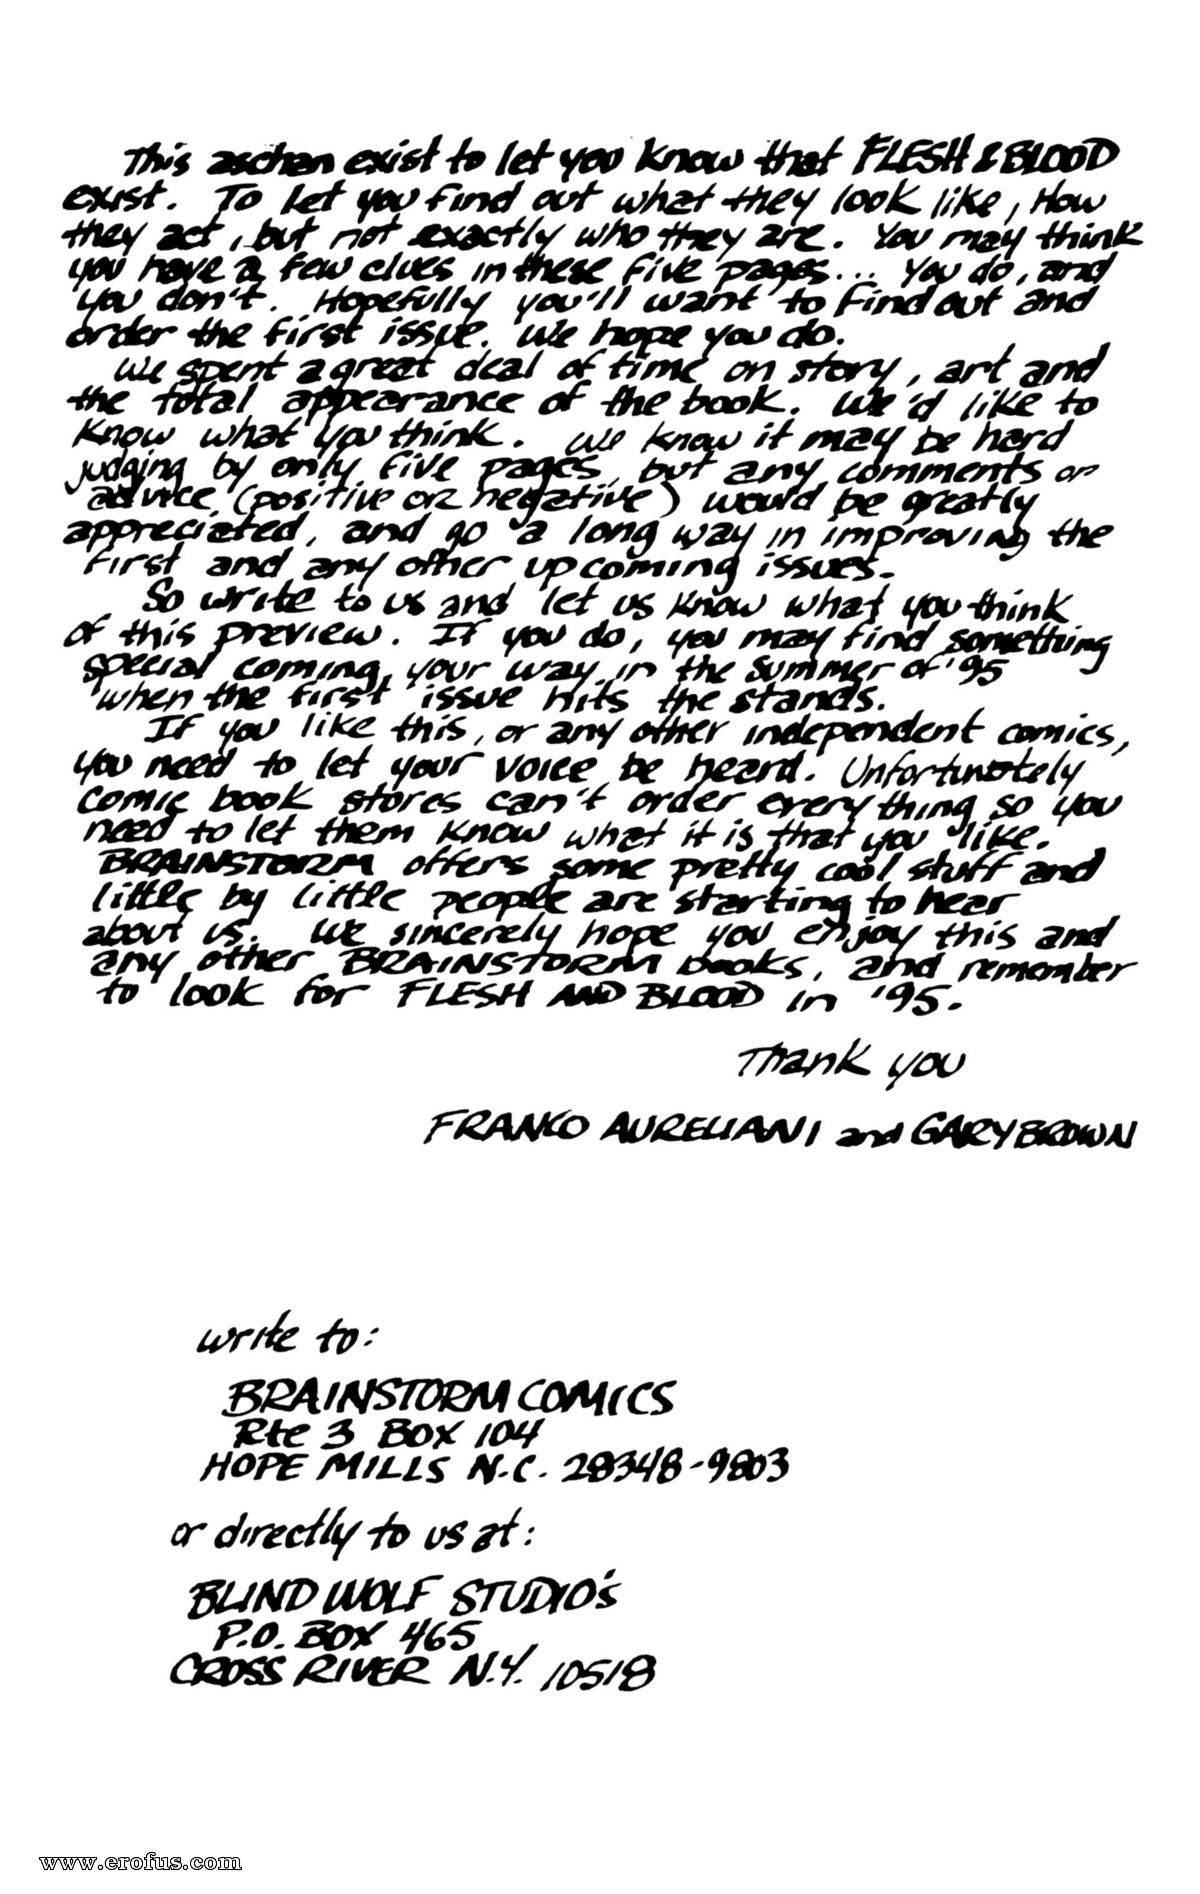 This aschan exist to let you know that FLESH & BLOOD
exist. To let you find out what they look like, How
they act, but not exactly who they are. You may think
you have a few clues in these five pages... You do, and
you don't. Hopefully you'll want to find out and
order the first issue. We hope you do.
We spent a great deal of time on story, art and
the total appearance of the book. We'd like to
know what you think. We know it may be hard
judging by only five pages, but any comments or
advice (positive or negative) would be greatly
appreciated, and go a long way in improving the
first and any other upcoming issues.
So write to us and let us know what you think
of this preview. If you do, you may find something
special coming your way in the summer of '95
when the first issue hits the stands.
If you like this, or any other independent comics,
you need to let your voice be heard. Unfortunotely
comic book stores can't order everything so you
need to let them know what it is that you like.
BRAINSTORM offers some pretty cool stuff and
little by little people are starting to hear
about us. We sincerely hope you enjoy this and
any other BRAINSTORM books, and remember
to look for FLESH AND BLOOD in '95.
Thank you
FRANCO AURELIANI and GARY BROWN
write to:
BRAINSTORM COMICS
Rte 3 Box 104
HOPE MILLS N.C. 28348-9803
or directly to us at:
BLIND WOLF STUDIO's
P.O. BOX 465
CROSS RIVER N.Y. 10518
www.erofus.com